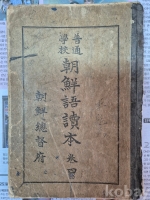 普通學校
朝鮮語讀本 卷四
朝鮮總督府
kobay